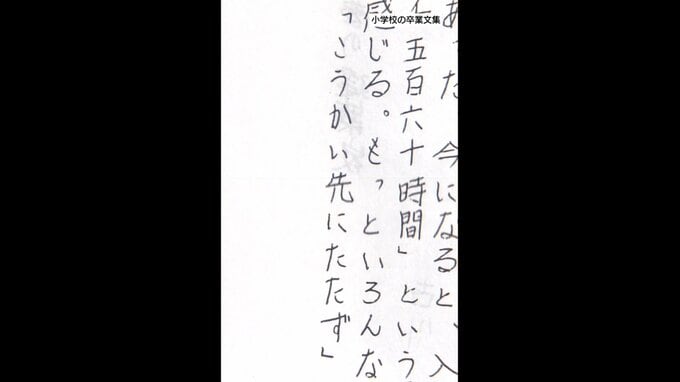 小学校の卒業文集
あった 今になると、入
五百六十時間」という
感じる。もっといろんな
「こうかい先にたたず」